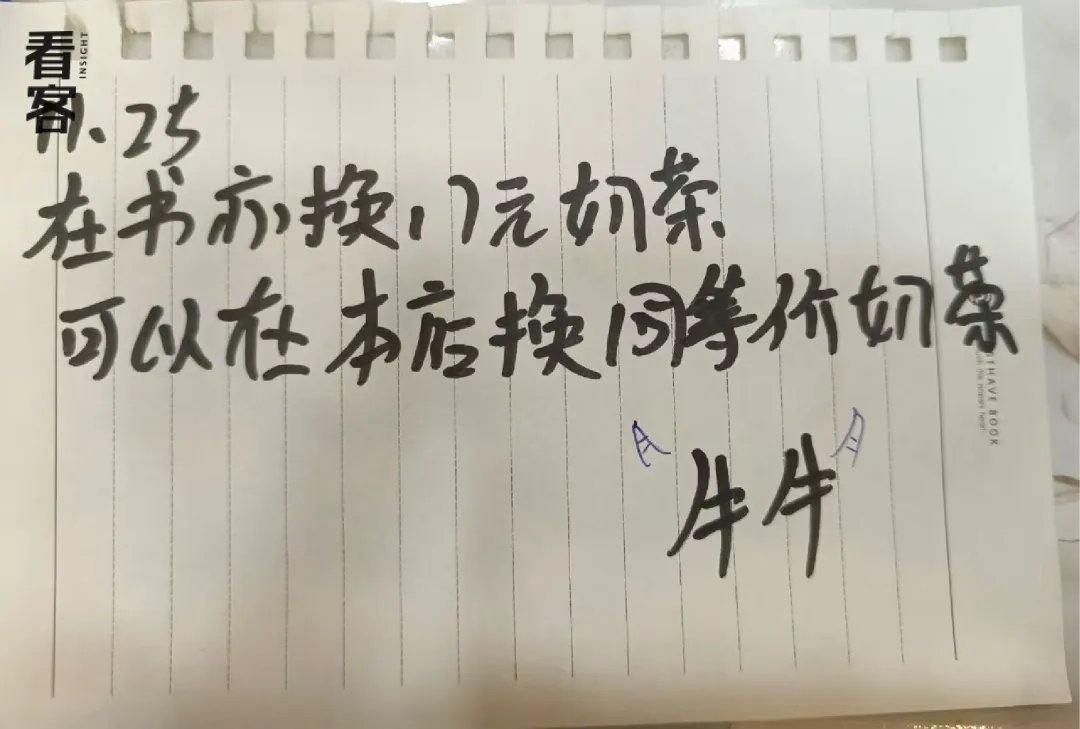 看客
INSIGHT
11.25
在书亦换17元奶茶
可以在本店换同等价奶茶
牛牛